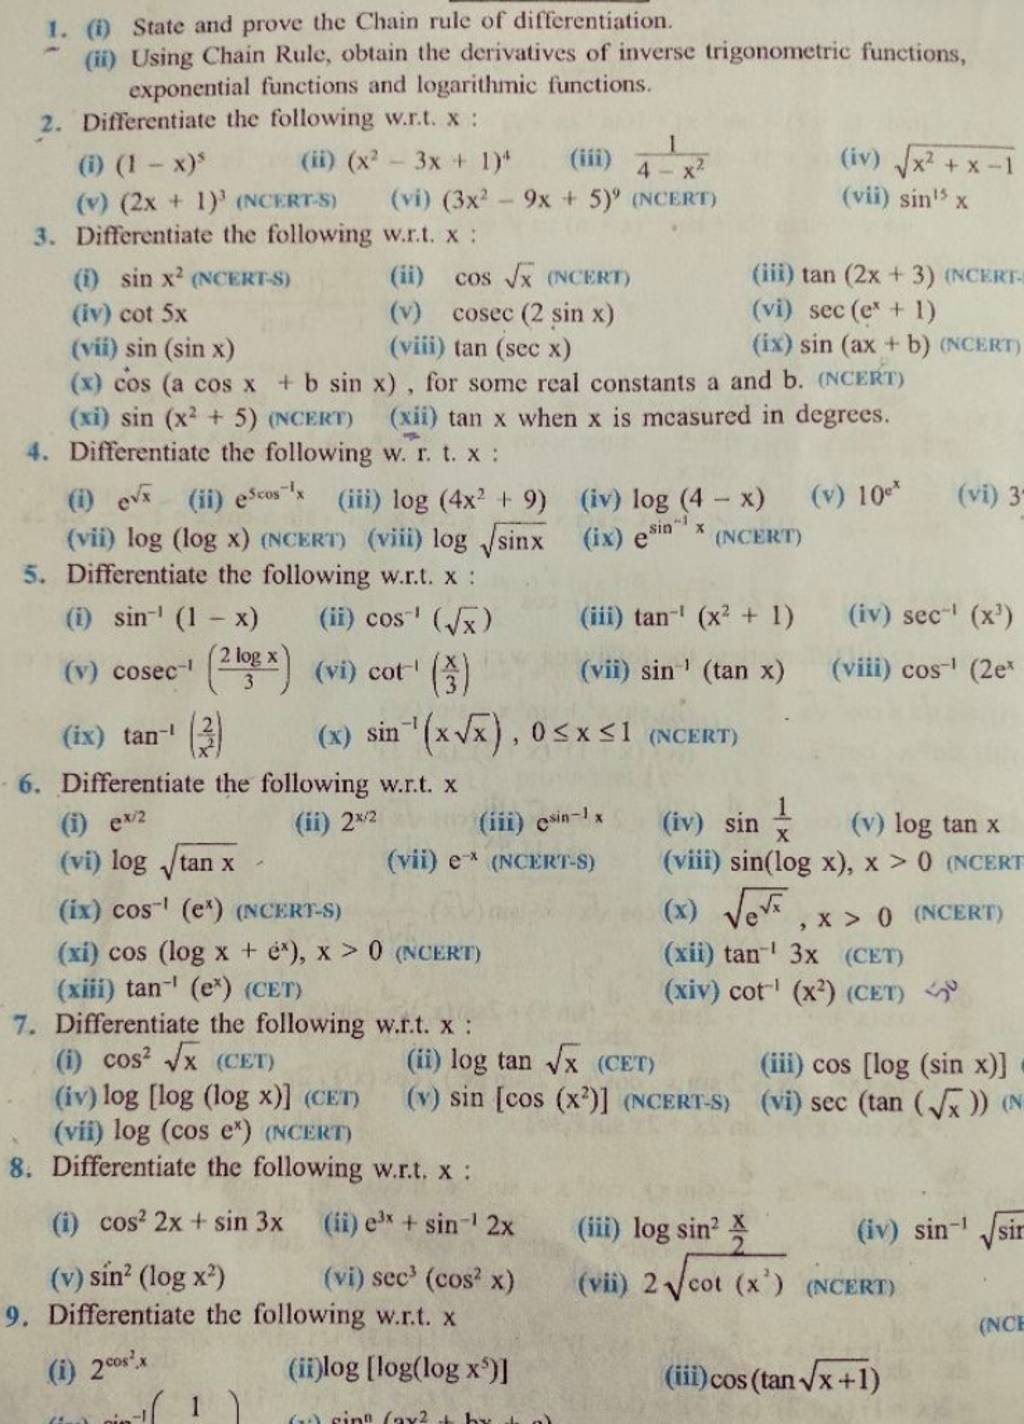 1. (i) State and prove the Chain rule of differentiation.
(ii) Using Chain Rule, obtain the derivatives of inverse trigonometric functions,
exponential functions and logarithmic functions.
2. Differentiate the following w.r.t. x :
(i) (1 – x)⁵ (ii) (x² – 3x + 1)⁴ (iii) 1/(4 – x²) (iv) √(x² + x – 1)
(v) (2x + 1)³ (NCERT-S) (vi) (3x² – 9x + 5)⁹ (NCERT) (vii) sin¹⁵ x
3. Differentiate the following w.r.t. x :
(i) sin x² (NCERT-S) (ii) cos √x (NCERT) (iii) tan (2x + 3) (NCERT-
(iv) cot 5x (v) cosec (2 sin x) (vi) sec (eˣ + 1)
(vii) sin (sin x) (viii) tan (sec x) (ix) sin (ax + b) (NCERT)
(x) cos (a cos x + b sin x) , for some real constants a and b. (NCERT)
(xi) sin (x² + 5) (NCERT) (xii) tan x when x is measured in degrees.
4. Differentiate the following w. r. t. x :
(i) e^√x (ii) e^(5cos⁻¹x) (iii) log (4x² + 9) (iv) log (4 – x) (v) 10^(eˣ) (vi) 3
(vii) log (log x) (NCERT) (viii) log √(sinx) (ix) e^(sin⁻¹ x) (NCERT)
5. Differentiate the following w.r.t. x :
(i) sin⁻¹ (1 – x) (ii) cos⁻¹ (√x) (iii) tan⁻¹ (x² + 1) (iv) sec⁻¹ (x³)
(v) cosec⁻¹ (2 log x/3) (vi) cot⁻¹ (x/3) (vii) sin⁻¹ (tan x) (viii) cos⁻¹ (2eˣ
(ix) tan⁻¹ (2/x²) (x) sin⁻¹(x√x) , 0 ≤ x ≤ 1 (NCERT)
6. Differentiate the following w.r.t. x
(i) e^(x/2) (ii) 2^(x/2) (iii) e^(sin⁻¹ x) (iv) sin 1/x (v) log tan x
(vi) log √(tan x) (vii) e⁻ˣ (NCERT-S) (viii) sin(log x), x > 0 (NCERT
(ix) cos⁻¹ (eˣ) (NCERT-S) (x) √(e^√x) , x > 0 (NCERT)
(xi) cos (log x + eˣ), x > 0 (NCERT) (xii) tan⁻¹ 3x (CET)
(xiii) tan⁻¹ (eˣ) (CET) (xiv) cot⁻¹ (x²) (CET)
7. Differentiate the following w.r.t. x :
(i) cos² √x (CET) (ii) log tan √x (CET) (iii) cos [log (sin x)] (
(iv) log [log (log x)] (CET) (v) sin [cos (x²)] (NCERT-S) (vi) sec (tan (√x)) (N
(vii) log (cos eˣ) (NCERT)
8. Differentiate the following w.r.t. x :
(i) cos² 2x + sin 3x (ii) e³ˣ + sin⁻¹ 2x (iii) log sin² x/2 (iv) sin⁻¹ √sin
(v) sin² (log x²) (vi) sec³ (cos² x) (vii) 2√(cot (x²)) (NCERT)
9. Differentiate the following w.r.t. x (NCE
(i) 2^(cos² x) (ii) log [log(log x⁵)] (iii) cos (tan√(x+1))